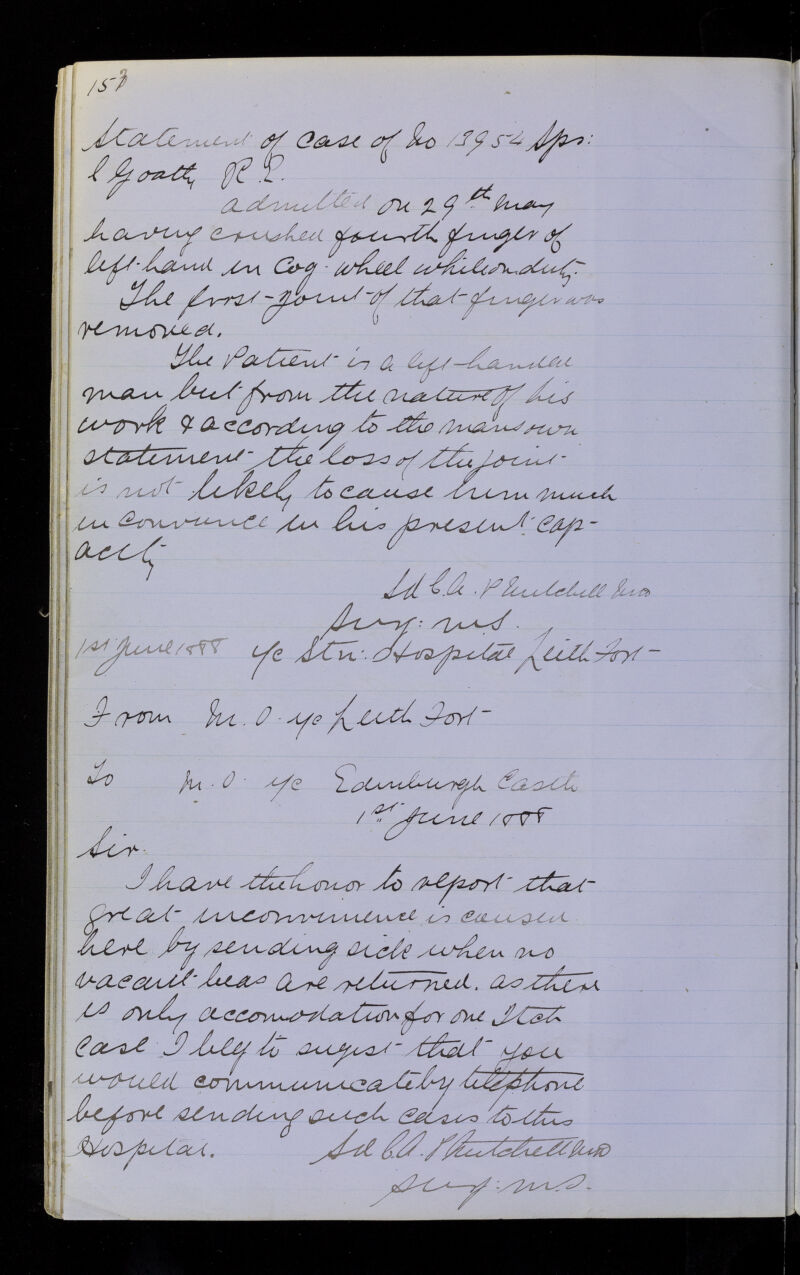 153
Statement of case of No 13954 Spr:
C Goatly R.E.
admitted on 29th May
having crushed fourth finger of
left hand in Cog wheel while on duty.
The first joint of that finger was
removed.
The Patient is a left-handed
man but from the nature of his
work & according to the mans own
statement the loss of the joint
is not likely to cause him much
inconvience in his present cap-
acity
Sd C.A. P Mitchell MD
Surg: M.S.
1st June 1888 i/c Stn: Hospital Leith Fort
From M.O. i/c Leith Fort
To M.O. i/c Edinburgh Castle
1st June 1888
Sir.
I have the honor to report that
great inconvinience is caused
here by sending sick when no
vacant beds are returned. as there
is only accomodation for one Itch
case I beg to sugest that you
would communicate by telephone
before sending such cases to this
Hospital. Sd C.A. P Mitchell MD
Surg: M.S.